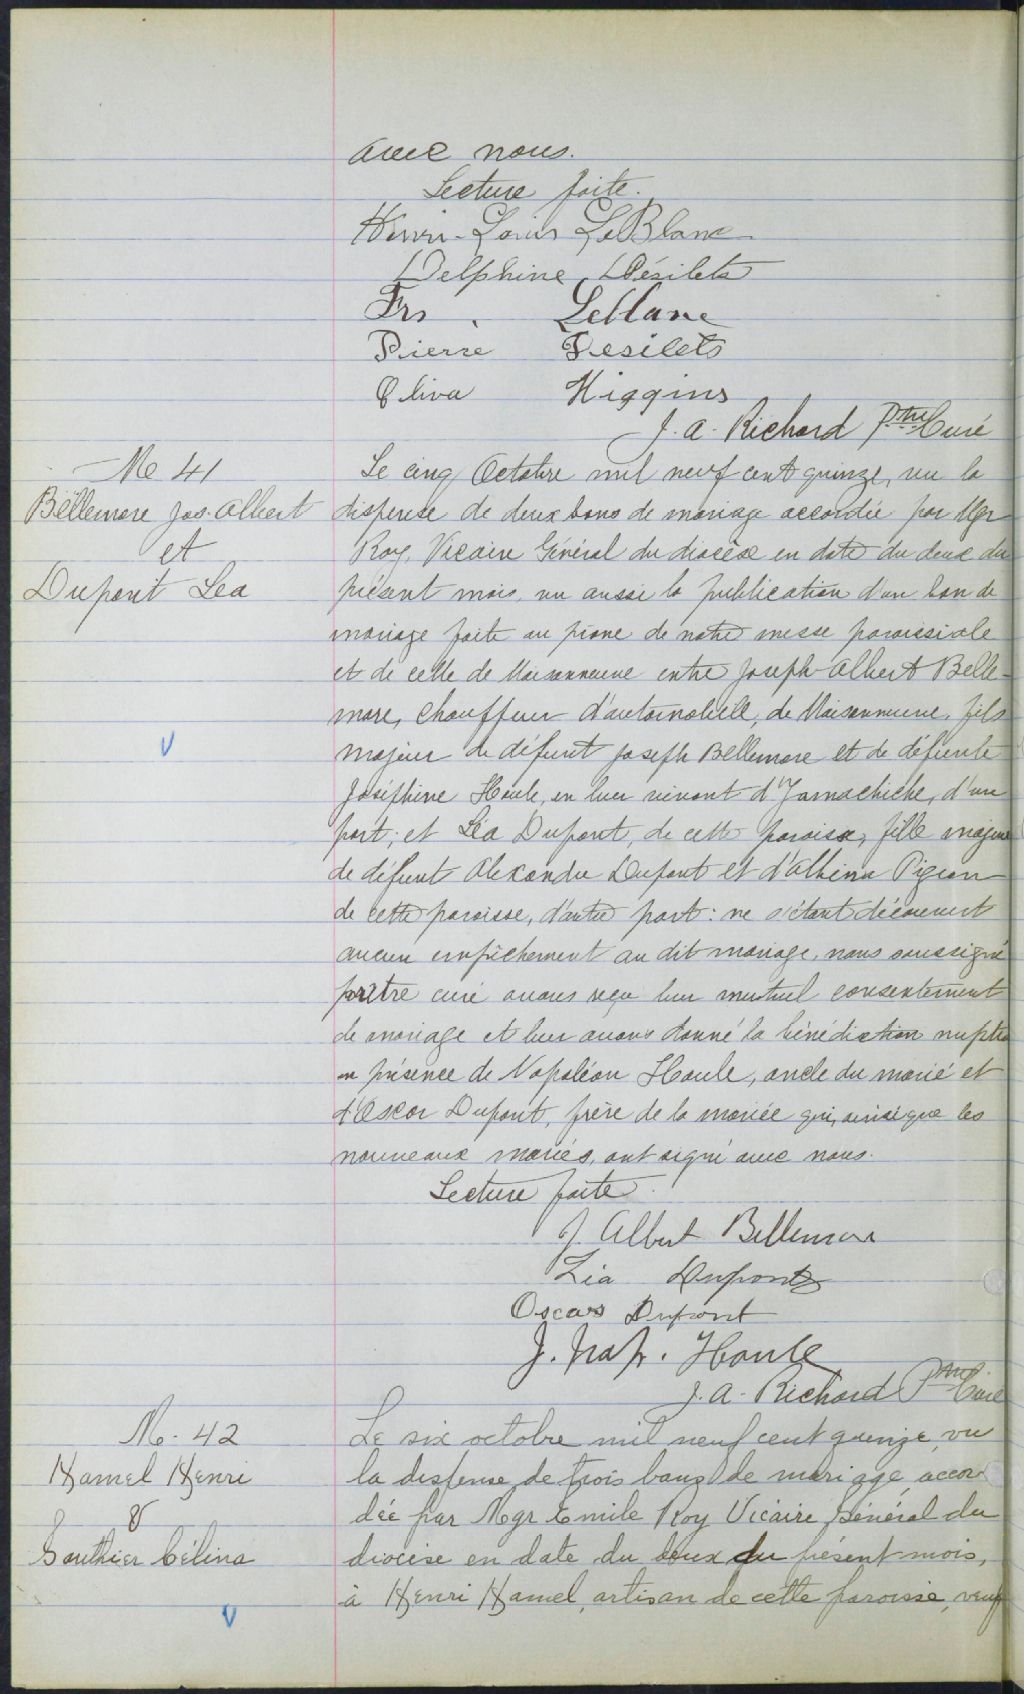 avec nous.
Lecture faite.
Henri-Louis LeBlanc
Delphine Désilets
Frs. Leblanc
Pierre Desilets
Oliva Higgins
J. A. Richard Ptre Curé
M 41
Bellemare Jos. Albert
et
Dupont Lea
Le cinq Octobre mil neuf cent quinze, vu la
dispense de deux bans de mariage accordée par Mgr
Roy, Vicaire Général du diocèse en date du deux du
présent mois, vu aussi la publication d'un ban de
mariage faite au prone de notre messe paroissiale
et de celle de Maisonneuve entre Joseph-Albert Belle-
mare, chauffeur d'automobile, de Maisonneuve, fils
majeur de défunt Joseph Bellemare et de défunte
Joséphine Houle, en leur vivant d'Yamachiche, d'une
part; et Léa Dupont, de cette paroisse, fille majeure
de défunt Alexandre Dupont et d'Albina Pigeon
de cette paroisse, d'autre part: ne s'étant découvert
aucun empêchement au dit mariage, nous soussigné
prêtre curé avons reçu leur mutuel consentement
de mariage et leur avons donné la bénédiction nuptia
en présence de Napoléon Houle, oncle du marié et
d'Oscar Dupont, frère de la mariée qui, ainsi que les
nouveaux mariés, ont signé avec nous.
Lecture faite.
J. Albert Bellemare
Léa Dupont
Oscar Dupont
J. Nap. Houle
J. A. Richard Ptre Curé
M. 42
Hamel Henri
&
Gauthier Célina
Le six octobre mil neuf cent quinze, vu
la dispense de trois bans de mariage, accor-
dée par Mgr Emile Roy Vicaire Général du
diocèse en date du deux du présent mois,
à Henri Hamel, artisan de cette paroisse, veuf